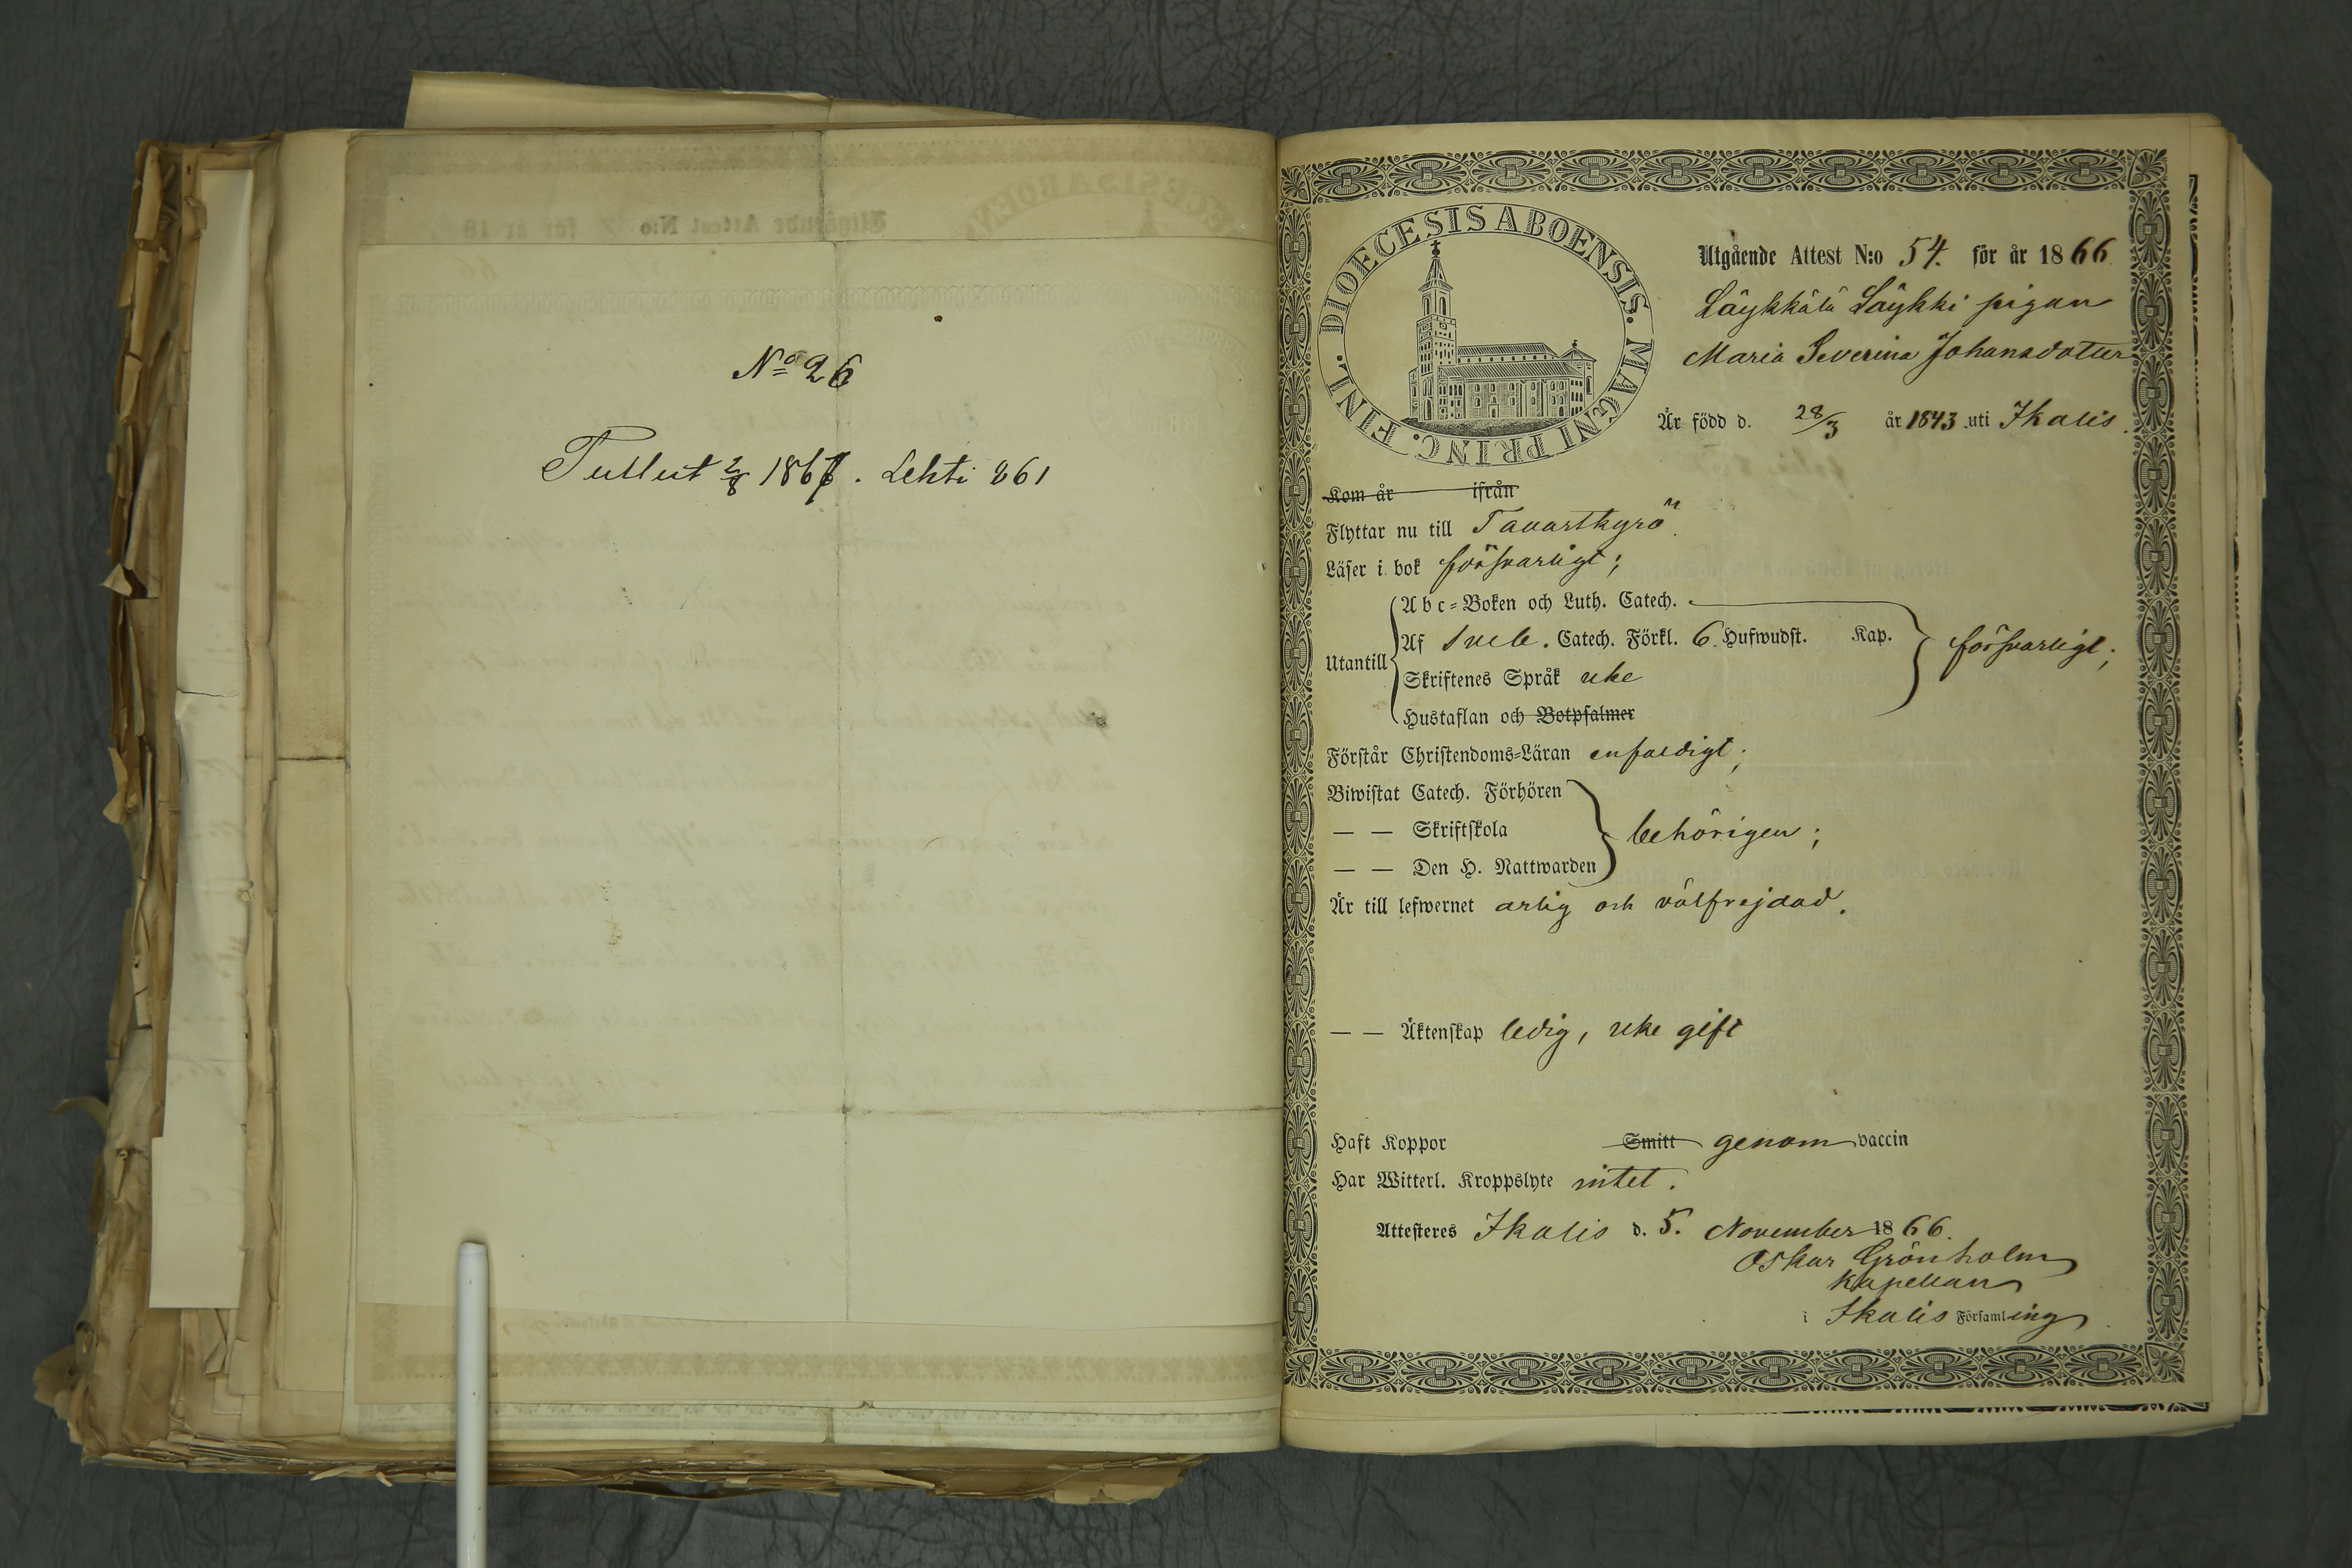 Nº 26
Tullut 2/8 1867. Lehti 261
DIOECESIS ABOENSIS. MAGNI PRINC. FINL.
Utgående Attest N:o 54. för år 1866
Läykkälä Läykki pigan
Maria Severina Johansdotter
Är född d. 28/3 år 1843 uti Ikalis.
Kom år ifrån
Flyttar nu till Tavastkyrö.
Läser i bok försvarligt;
Abc-Boken och Luth. Catech.
Af Sveb. Catech. Förkl. 6. Hufwudst. Kap.
Utantill försvarligt;
Skriftenes Språk icke
Hustaflan och Botpsalmer
Förstår Christendoms-Läran enfaldigt;
Biwistat Catech. Förhören
— — Skriftskola behörigen;
— — Den H. Nattwarden
Är till lefwernet ärlig och välfrejdad.
— — Äktenskap ledig, icke gift
Haft Koppor Smitt genom vaccin
Har Witterl. Kroppslyte intet.
Attesteres Ikalis d. 5. November 1866.
Oskar Grönholm
Kapellan
i Ikalis Församling